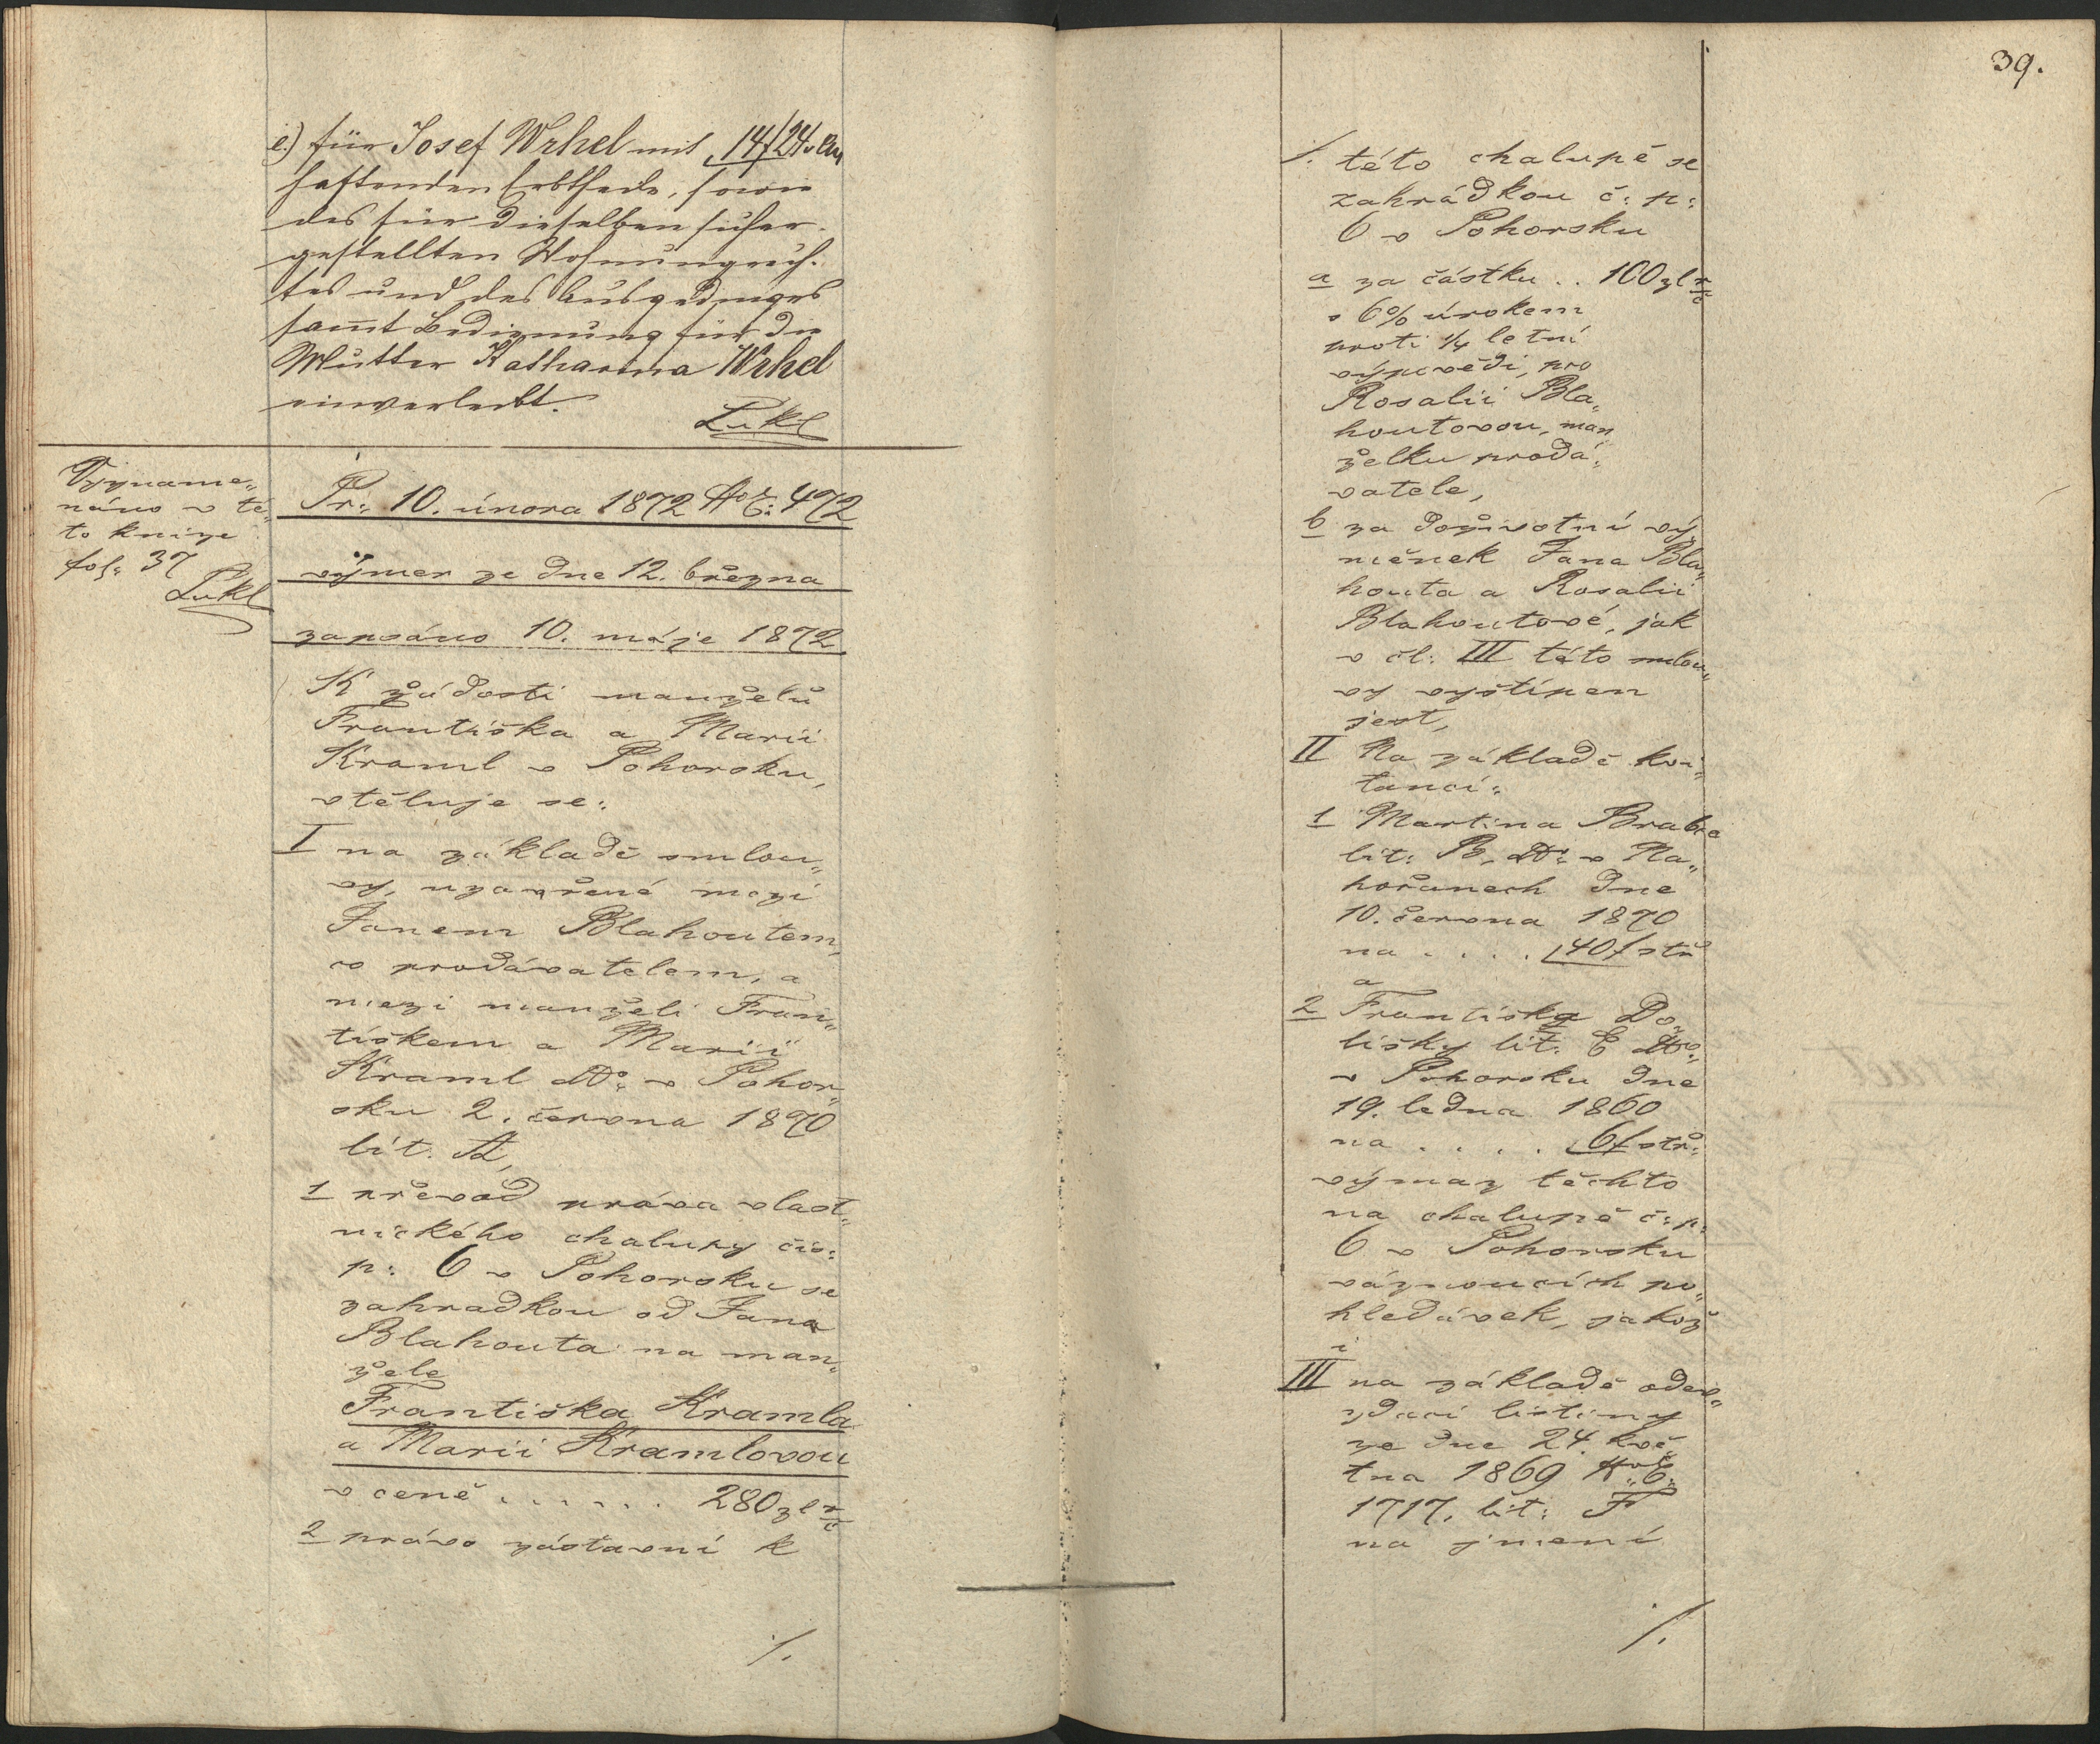 e.) für Josef Wrhel mit 14 f 24
haftenden Erbtheile, sowie
des für dieselben sicher-
gestellten Wohnungsrech-
tes und des Ausgedinges
sammt Bedienung für die
Mutter Katharina Wrhel
einverleibt.
Lukl
Vyzname„
náno v té„
to knize
fol: 37
Lukl
Pr: 10. února 1872 Č: 472
výměr ze dne 12. března
zapsáno 10. máje 1872.
K žádosti manželů
Františka a Marii
Kraml v Pohorsku,
vtěluje se:
I na základě smlou„
vy, uzavřené mezi
Janem Blahoutem,
co prodávatelem, a
mezi manželi Fran„
tiškem a Marii
Kraml v Pohor„
sku 2. června 1870
lit. A,
1 převod práva vlast„
nického chalupy čís:
p: 6 v Pohorsku se
zahradkou od Jana
Blahouta na man„
žele
Františka Kramla
a Marii Kramlovou
v ceně . . . . . . 280 zl r č
2 právo zástavní k
/.
39.
/. této chalupě se
zahrádkou č: p:
6 v Pohorsku
a za částku . . 100 zl r č
s 6% úrokem
proti ¼ letní
výpovědi, pro
Rosalii Bla„
houtovou, man„
želku prodá„
vatele,
b za doživotní vý„
měnek Jana Bla„
houta a Rosalii
Blahoutové, jak
v čl: III této smlou„
vy vyštípen
jest,
II Na základě kvi„
tancí:
1 Martina Brabce
lit: B, v Na„
hořanech dne
10. června 1870
na . . . . 40 f stř
a
2 Františka Do„
lišky lit. E
v Pohorsku dne
19. ledna 1860
na . . . . 6 f stř:
výmaz těchto
na chalupě č: p:
6 v Pohorsku
váznoucích po„
hledávek, jakož
i
III na základě odev„
zdací listiny
ze dne 24. kvě„
tna 1869 Č:
1717, lit: F
na jmení
/.